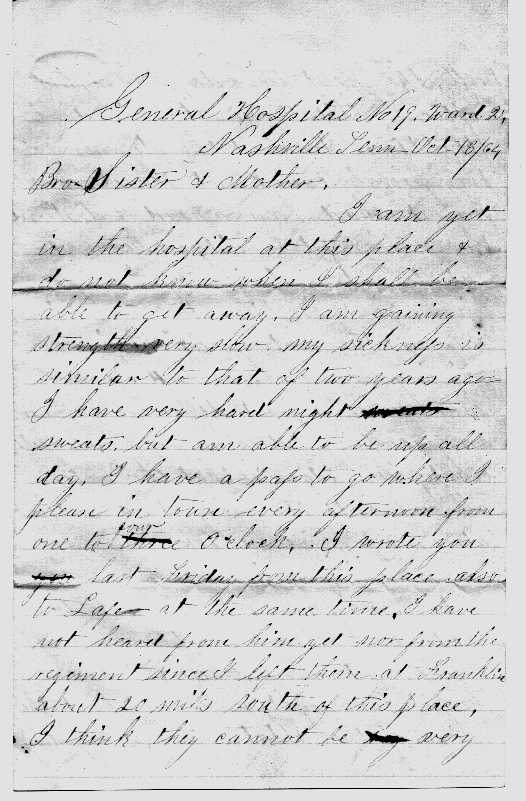 General Hospital No 19. Ward 2,
Nashville Tenn Oct 18/64
Bro Sister & Mother.
I am yet
in the hospital at this place &
do not know when I shall be
able to get away. I am gaining
strength very slow my sickness is
similar to that of two years ago
I have very hard night sweats
sweats. but am able to be up all
day. I have a pass to go where I
please in town every afternoon from
one to three four O'clock. I wrote you
you last Friday from this place also
to Lafe at the same time. I have
not heard from him yet nor from the
regiment since I left them at Franklin
about 20 mils south of this place.
I think they cannot be very